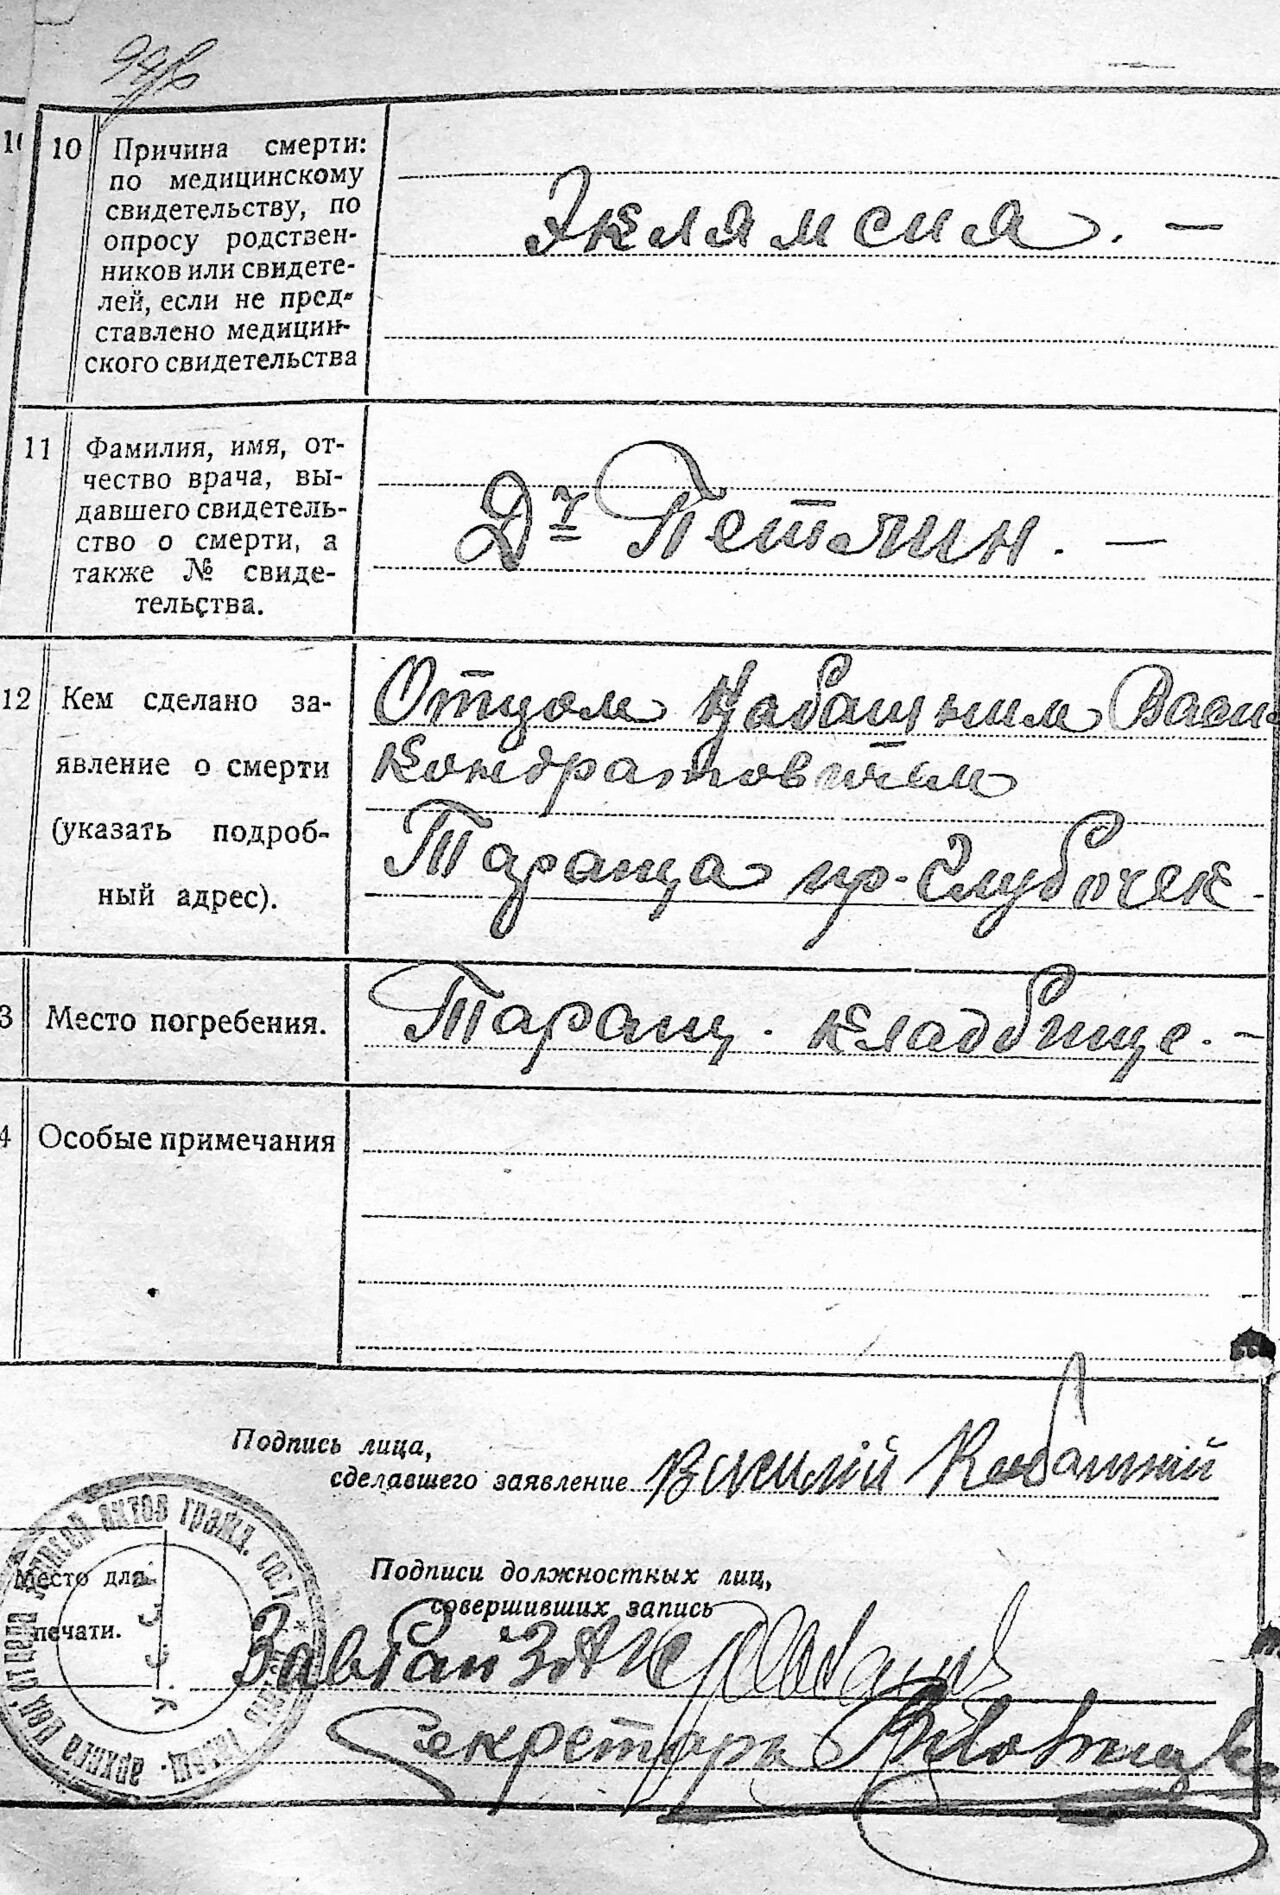 10 Причина смерти:
по медицинскому
свидетельству, по
опросу родствен-
ников или свидете-
лей, если не пред-
ставлено медицин-
ского свидетельства
Эклямсия. —
11 Фамилия, имя, от-
чество врача, вы-
давшего свидетель-
ство о смерти, а
также № свиде-
тельства.
Др Петлин. —
12 Кем сделано за-
явление о смерти
(указать подроб-
ный адрес).
Отцом Кабашним Васи
Кондратовичем
Тараща пр-Глубочек
3 Место погребения.
Таращ. кладбище. —
4 Особые примечания
Подпись лица,
сделавшего заявление Василий Кабашний
Место для
печати.
Подписи должностных лиц,
совершивших запись
Зав Рай ЗАГС
Секретарь